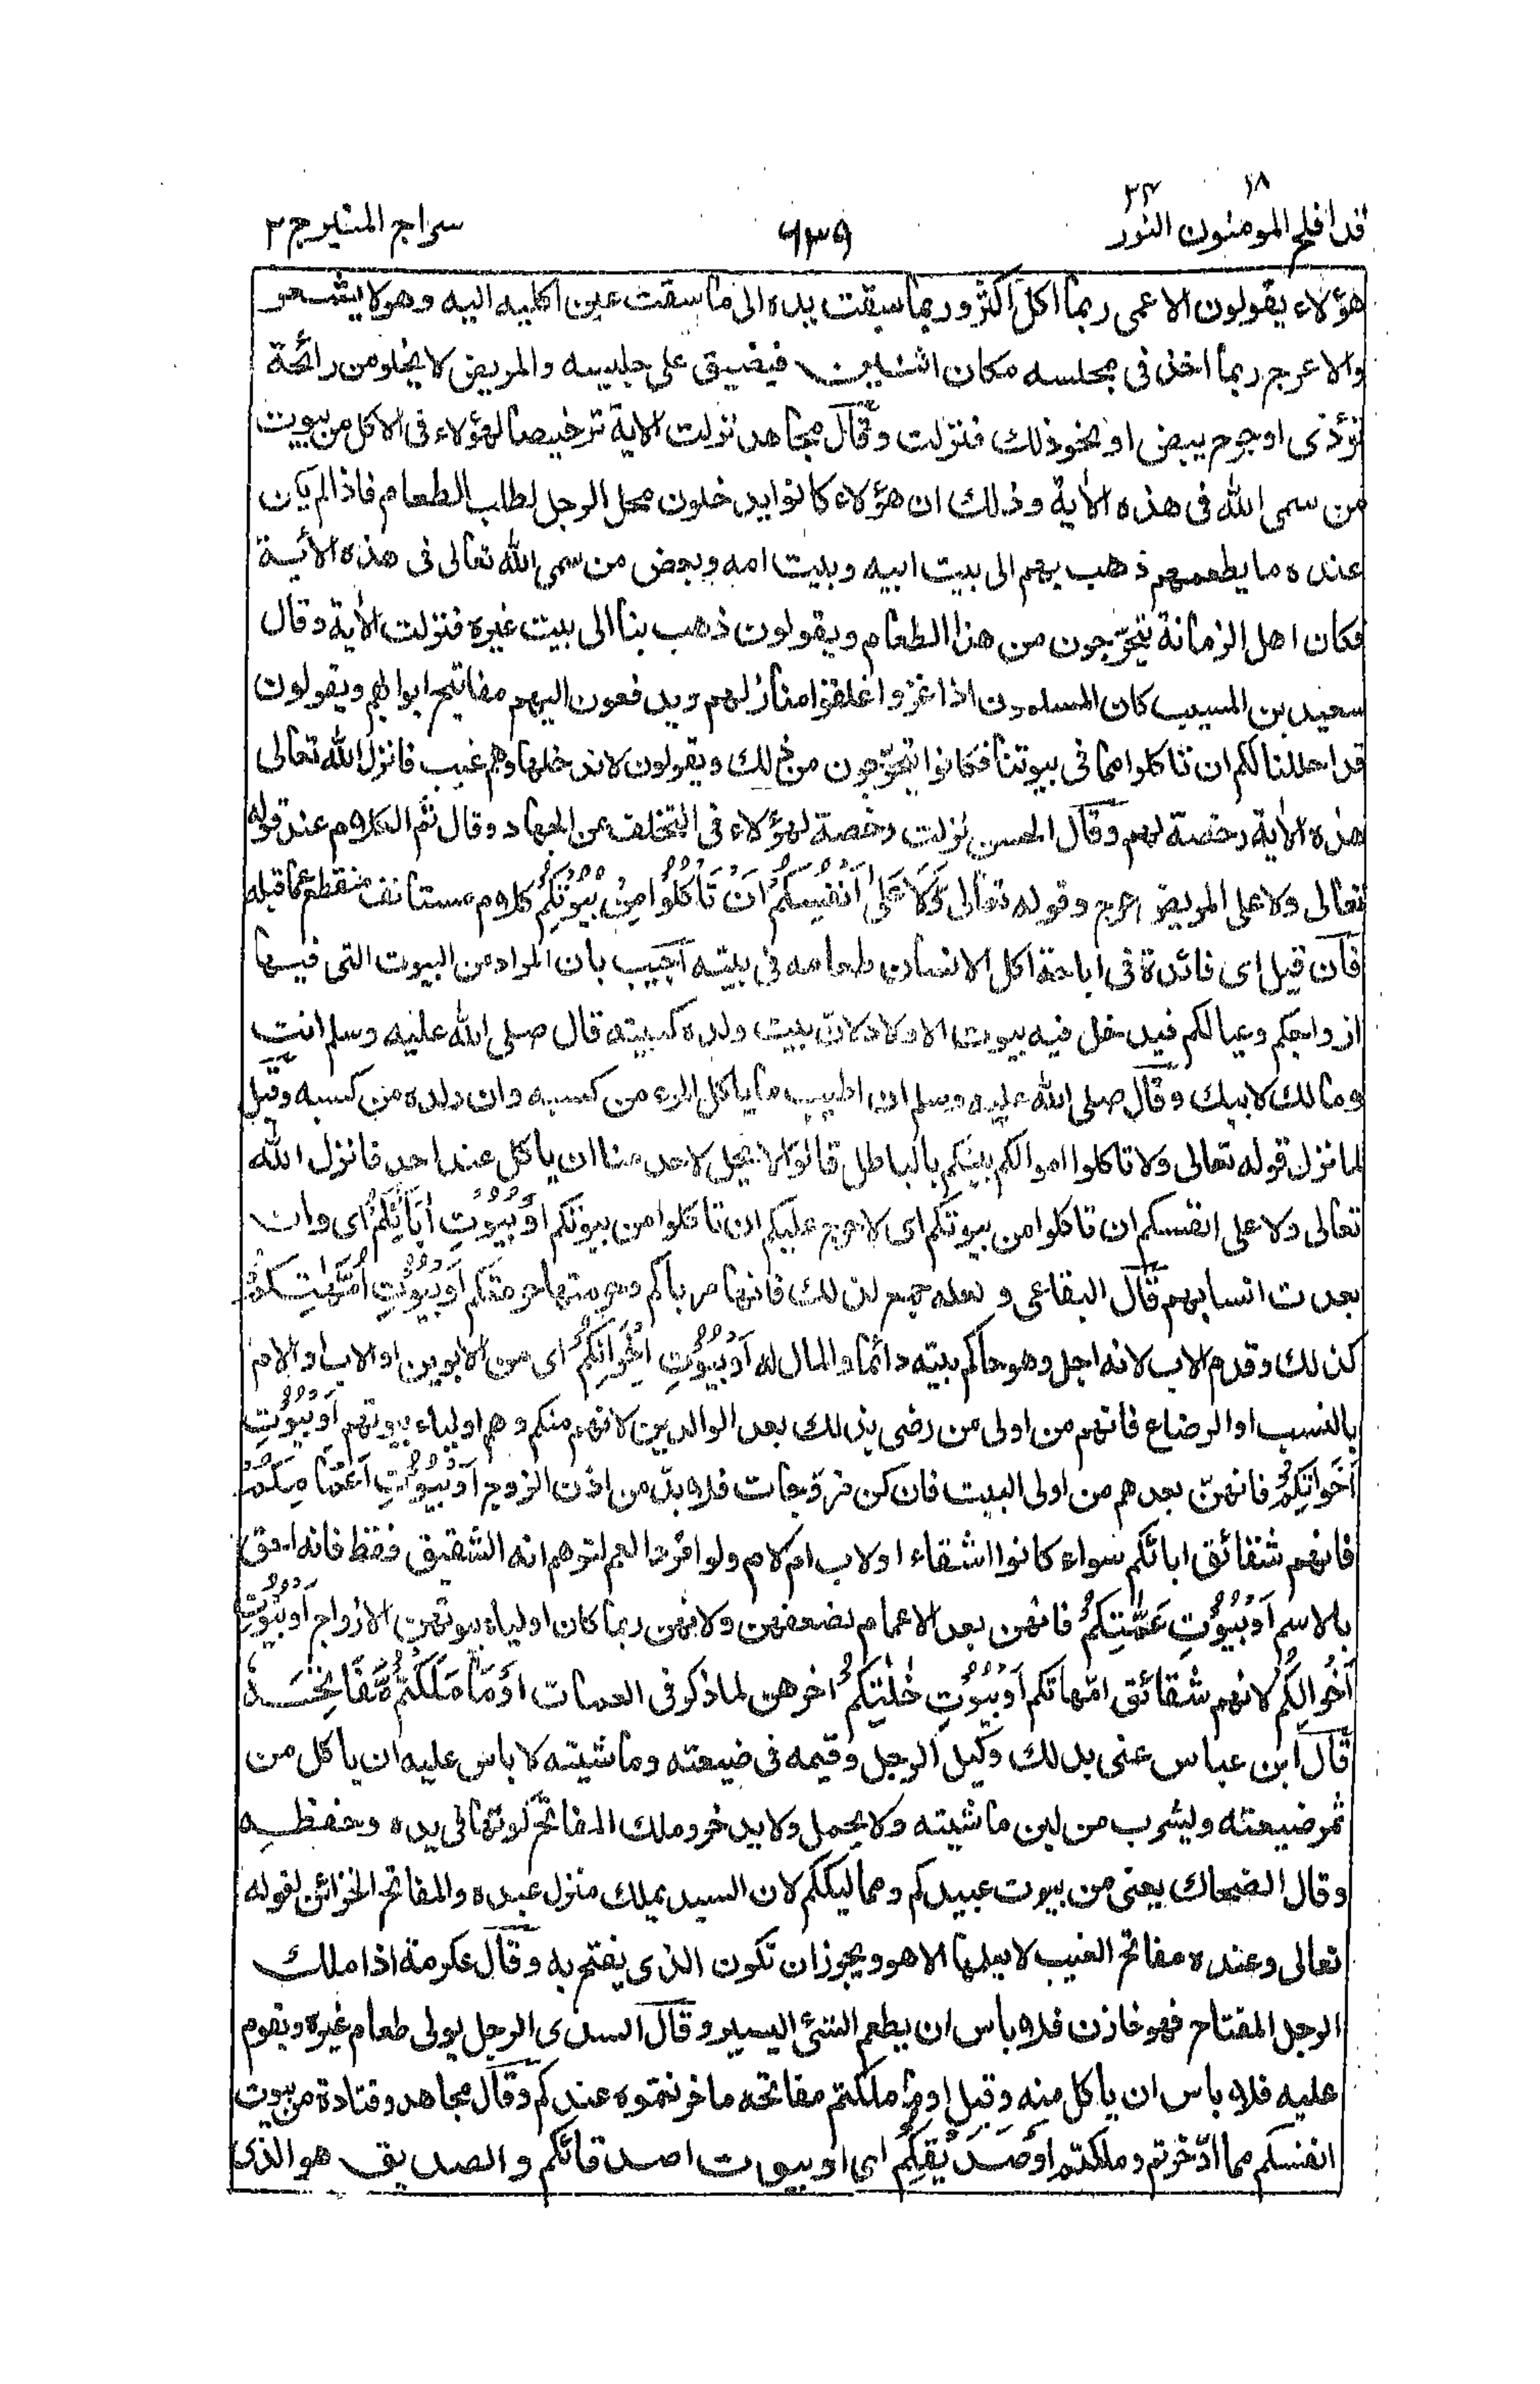 ١٨ ٢٤
قد افلح المومنون النور ٦٣٩ سراج المنير ج ٢
هؤلاء يقولون الاعمى ربما اكل اكثر وربما سبقت يده الى ما سبقت عين اكليه اليه وهو لا يشعر
والاعرج ربما اخذ فى مجلسه مكان اثنين فيضيق على جليسه والمريض لا يخلو من رائحة
تؤذى او جرح يبض او نحو ذلك فنزلت وقال مجاهد نزلت الاية ترخيصا لهؤلاء فى الاكل من بيوت
من سمى الله فى هذه الاية وذلك ان هؤلاء كانوا يدخلون محل الرجل لطلب الطعام فاذا لم يكن
عنده ما يطعمهم ذهب بهم الى بيت ابيه وبيت امه وبعض من سمى الله تعالى فى هذه الأية
فكان اهل الزمانة يتحرّجون من هذا الطعام ويقولون ذهب بنا الى بيت غيره فنزلت الأية وقال
سعيد بن المسيب كان المسلمون اذا غزوا اغلقوا منازلهم ويدفعون اليهم مفاتيح ابوابهم ويقولون
قد احللنا لكم ان تاكلوا مما فى بيوتنا فكانوا يتحرّجون من ذلك ويقولون لا ندخلها وهم غيب فانزل الله تعالى
هذه الأية رخصة لهم وقال الحسن نزلت رخصة لهؤلاء فى التخلف عن الجهاد وقال تم الكلام عند قوله
تعالى ولا على المريض حرج وقوله تعالى وَّلَا عَلىٰ اَنْفُسِكُمْ اَنْ تَاْكُلُوْا مِنْ بُيُوْتِكُمْ كلام مستانف منقطع عما قبله
فان قيل اى فائدة فى اباحة اكل الانسان طعامه فى بيته اجيب بان المراد من البيوت التى فيها
ازواجكم وعيالكم فيدخل فيه بيوت الاولاد لان بيت ولده كبيته قال صلى الله عليه وسلم انت
ومالك لابيك وقال صلى الله عليه وسلم ان اطيب ما ياكل المرء من كسبه وان ولده من كسبه وقيل
لما نزل قوله تعالى ولا تاكلوا اموالكم بينكم بالباطل قالوا لا يحل لاحد منا ان ياكل عند احد فانزل الله
تعالى ولا على انفسكم ان تاكلوا من بيوتكم اى لا حرج عليكم ان تاكلوا من بيوتكم اَوْ بُيُوْتِ اٰبَآئِكُمْ اى وان
بعدت انسابهم قال البقاعى ولعله جمع لذلك فانها مرباكم وحرمتها حرمتكم اَوْ بُيُوْتِ اُمَّهٰتِكُمْ
كذلك وقدم الاب لانه اجل وهو حاكم بيته دائما والمال له اَوْ بُيُوْتِ اِخْوَانِكُمْ اى من الابوين او الاب او الام
بالنسب او الرضاع فانهم من اولى من رضى بذلك بعد الوالدين لانهم منكم وهم اولياء بيوتهم اَوْ بُيُوْتِ
اَخَوَاتِكُمْ فانهنّ بعدهم من اولى البيت فان كن مزوّجات فلا بدّ من اذن الزوج اَوْ بُيُوْتِ اَعْمَامِكُمْ
فانهم شقائق ابائكم سواء كانوا اشقاء او لاب ام لام ولو افرد العم لتوهم انه الشقيق فقط فانه احق
بالاسم اَوْ بُيُوْتِ عَمّٰتِكُمْ فانهن بعد الاعمام لضعفهن ولانهن ربما كان اولياء بيوتهن الازواج اَوْ بُيُوْتِ
اَخْوَالِكُمْ لانهم شقائق امّهاتكم اَوْ بُيُوْتِ خٰلٰتِكُمْ اخرهن لما ذكر فى العمات اَوْ مَا مَلَكْتُمْ مَّفَاتِحَهٗ
قال ابن عباس عنى بذلك وكيل الرجل وقيمه فى ضيعته وماشيته لا باس عليه ان ياكل من
ثمر ضيعته ويشرب من لبن ماشيته ولا يحمل ولا يدخر وملك المفاتح كونها فى يده وحفظه
وقال الضحاك يعنى من بيوت عبيدكم ومماليككم لان السيد يملك منزل عبده والمفاتح الخزائن لقوله
تعالى وعنده مفاتح الغيب لا يعلمها الا هو ويجوز ان تكون الذى يفتح به وقال عكرمة اذا ملك
الرجل المفتاح فهو خازن فلا باس ان يطعم الشئ اليسير وقال السدى الرجل يولى طعام غيره ويقوم
عليه فلا باس ان ياكل منه وقيل او ما ملكتم مفاتحه ما خزنتموه عندكم وقال مجاهد وقتادة من بيوت
انفسكم مما ادّخرتم وملكتم اَوْ صَدِيْقِكُمْ اى او بيوت اصدقائكم والصديق هو الذى